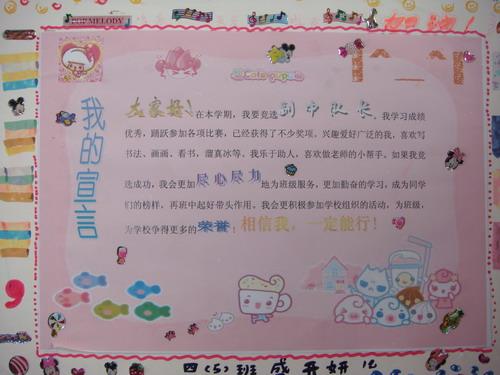 MY MELODY
加油!
我的宣言
大家好!在本学期,我要竞选副中队长,我学习成绩
优秀,踊跃参加各项比赛,已经获得了不少奖项。兴趣爱好广泛的我,喜欢写
书法、画画、看书,溜真冰等。我乐于助人,喜欢做老师的小帮手。如果我竞
选成功,我会更加尽心尽力地为班级服务,更加勤奋的学习,成为同学
们的榜样,再班中起好带头作用。我会更积极参加学校组织的活动,为班级,
为学校争得更多的荣誉!相信我,一定能行!
四(5)班